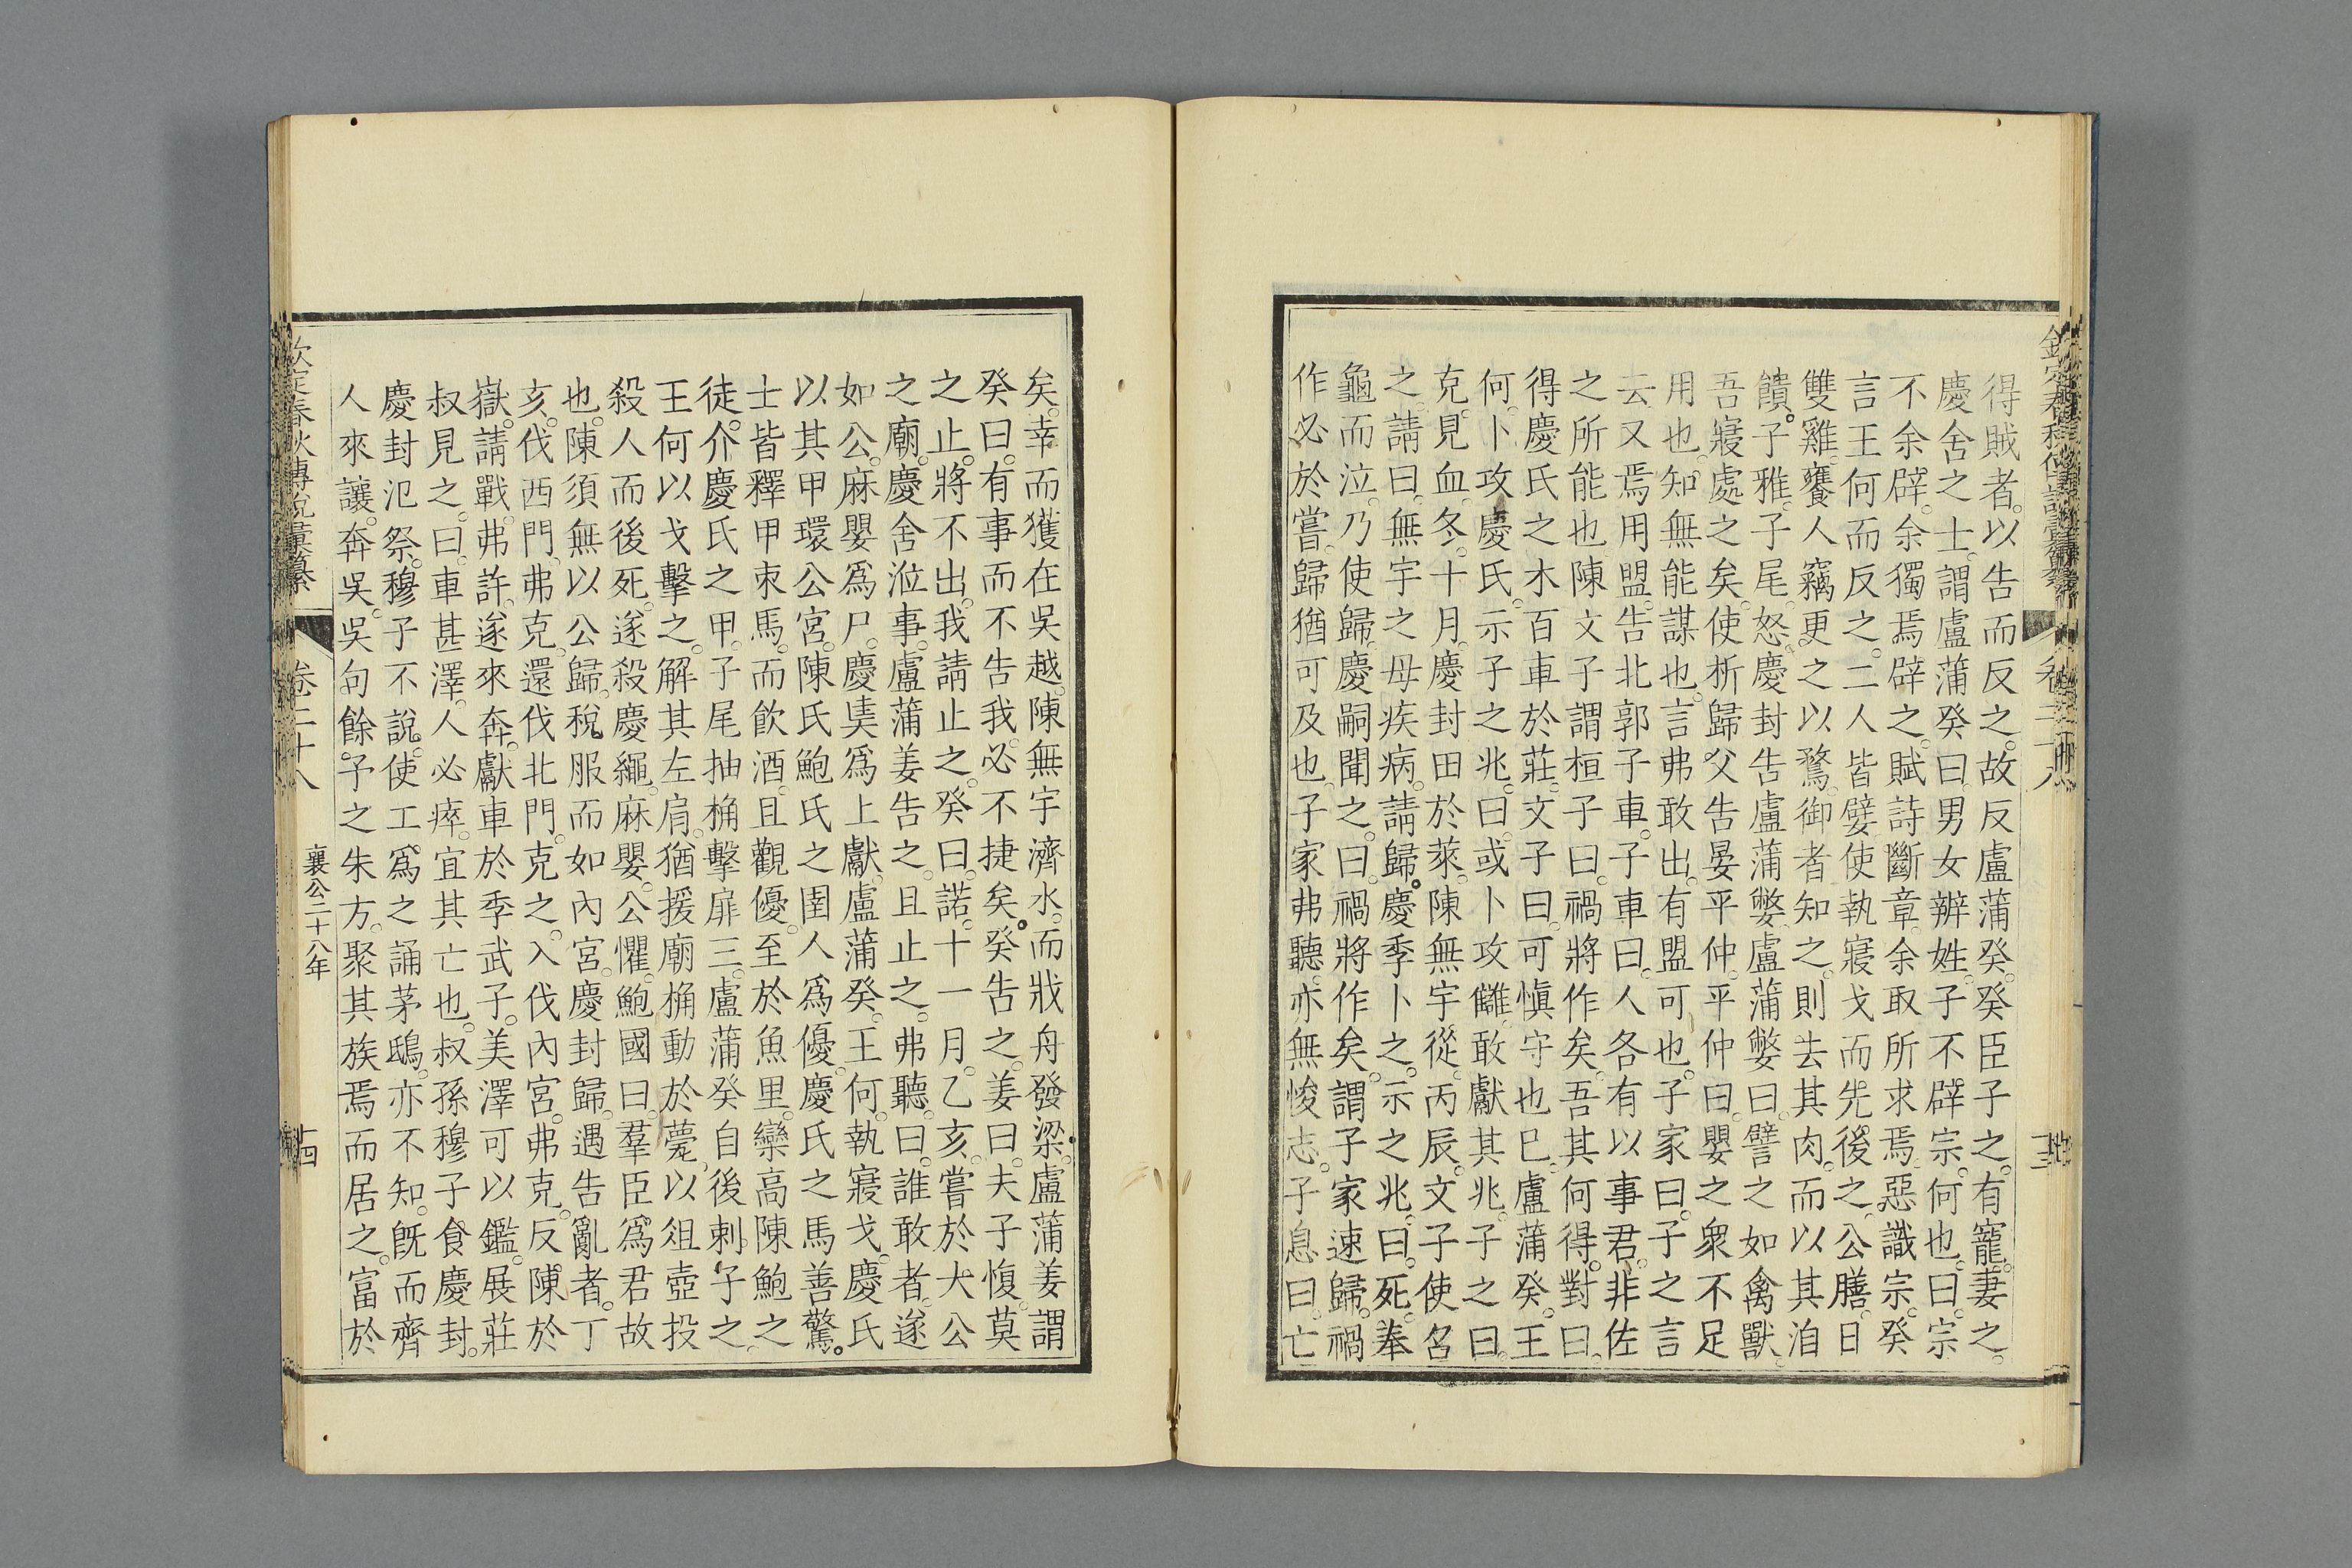 得賊者。以告而反之。故反盧蒲癸。癸臣子之。有寵。妻之。
慶舍之士。謂盧蒲癸曰。男女辨姓。子不辟宗。何也。曰。宗
不余辟。余獨焉辟之。賦詩斷章。余取所求焉。惡識宗。癸
言王何而反之。二人皆嬖。使執寢戈而先後之。公膳。日
雙雞。饔人竊更之以鶩。御者知之。則去其肉。而以其洎
饋。子雅。子尾。怒。慶封告盧蒲嫳。盧蒲嫳曰。譬之如禽獸。
吾寢處之矣。使析歸父告晏平仲。平仲曰。嬰之衆不足
用也。知無能謀也。言弗敢出。有盟可也。子家曰。子之言
云。又焉用盟。告北郭子車。子車曰。人各有以事君。非佐
之所能也。陳文子謂桓子曰。禍將作矣。吾其何得。對曰。
得慶氏之木百車於莊。文子曰。可愼守也已。盧蒲癸。王
何。卜攻慶氏。示子之兆。曰。或卜攻讎。敢獻其兆。子之曰。
克。見血。冬。十月。慶封田於萊。陳無宇從。丙辰。文子使召
之。請曰。無宇之母疾病。請歸。慶季卜之。示之兆。曰。死。奉
龜而泣。乃使歸。慶嗣聞之。曰。禍將作矣。謂子家速歸。禍
作必於嘗。歸猶可及也。子家弗聽。亦無悛志。子息曰。亡
矣。幸而獲在吳越。陳無宇濟水。而戕舟發梁。盧蒲姜謂
癸曰。有事而不告我。必不捷矣。癸告之。姜曰。夫子愎。莫
之止。將不出。我請止之。癸曰。諾。十一月。乙亥。嘗於大公
之廟。慶舍涖事。盧蒲姜告之。且止之。弗聽。曰。誰敢者。遂
如公。麻嬰爲尸。慶奊爲上獻。盧蒲癸。王何。執寢戈。慶氏
以其甲環公宮。陳氏鮑氏之圉人爲優。慶氏之馬善驚。
士皆釋甲束馬。而飮酒。且觀優。至於魚里。欒高陳鮑之
徒。介慶氏之甲。子尾抽桷擊扉三。盧蒲癸自後刺子之。
王何以戈擊之。解其左肩。猶援廟桷動於甍。以俎壺投
殺人而後死。遂殺慶繩。麻嬰。公懼。鮑國曰。羣臣爲君故
也。陳須無以公歸。稅服而如內宮。慶封歸。遇告亂者。丁
亥。伐西門。弗克。還伐北門。克之。入伐內宮。弗克。反。陳於
嶽。請戰。弗許。遂來奔。獻車於季武子。美澤可以鑑。展莊
叔見之。曰。車甚澤。人必瘁。宜其亡也。叔孫穆子食慶封。
慶封氾祭。穆子不說。使工。爲之誦茅鴟。亦不知。旣而齊
人來讓。奔吳。吳句餘予之朱方。聚其族焉而居之。富於
欽定春秋傳說彙纂 卷二十八 襄公二十八年 十四